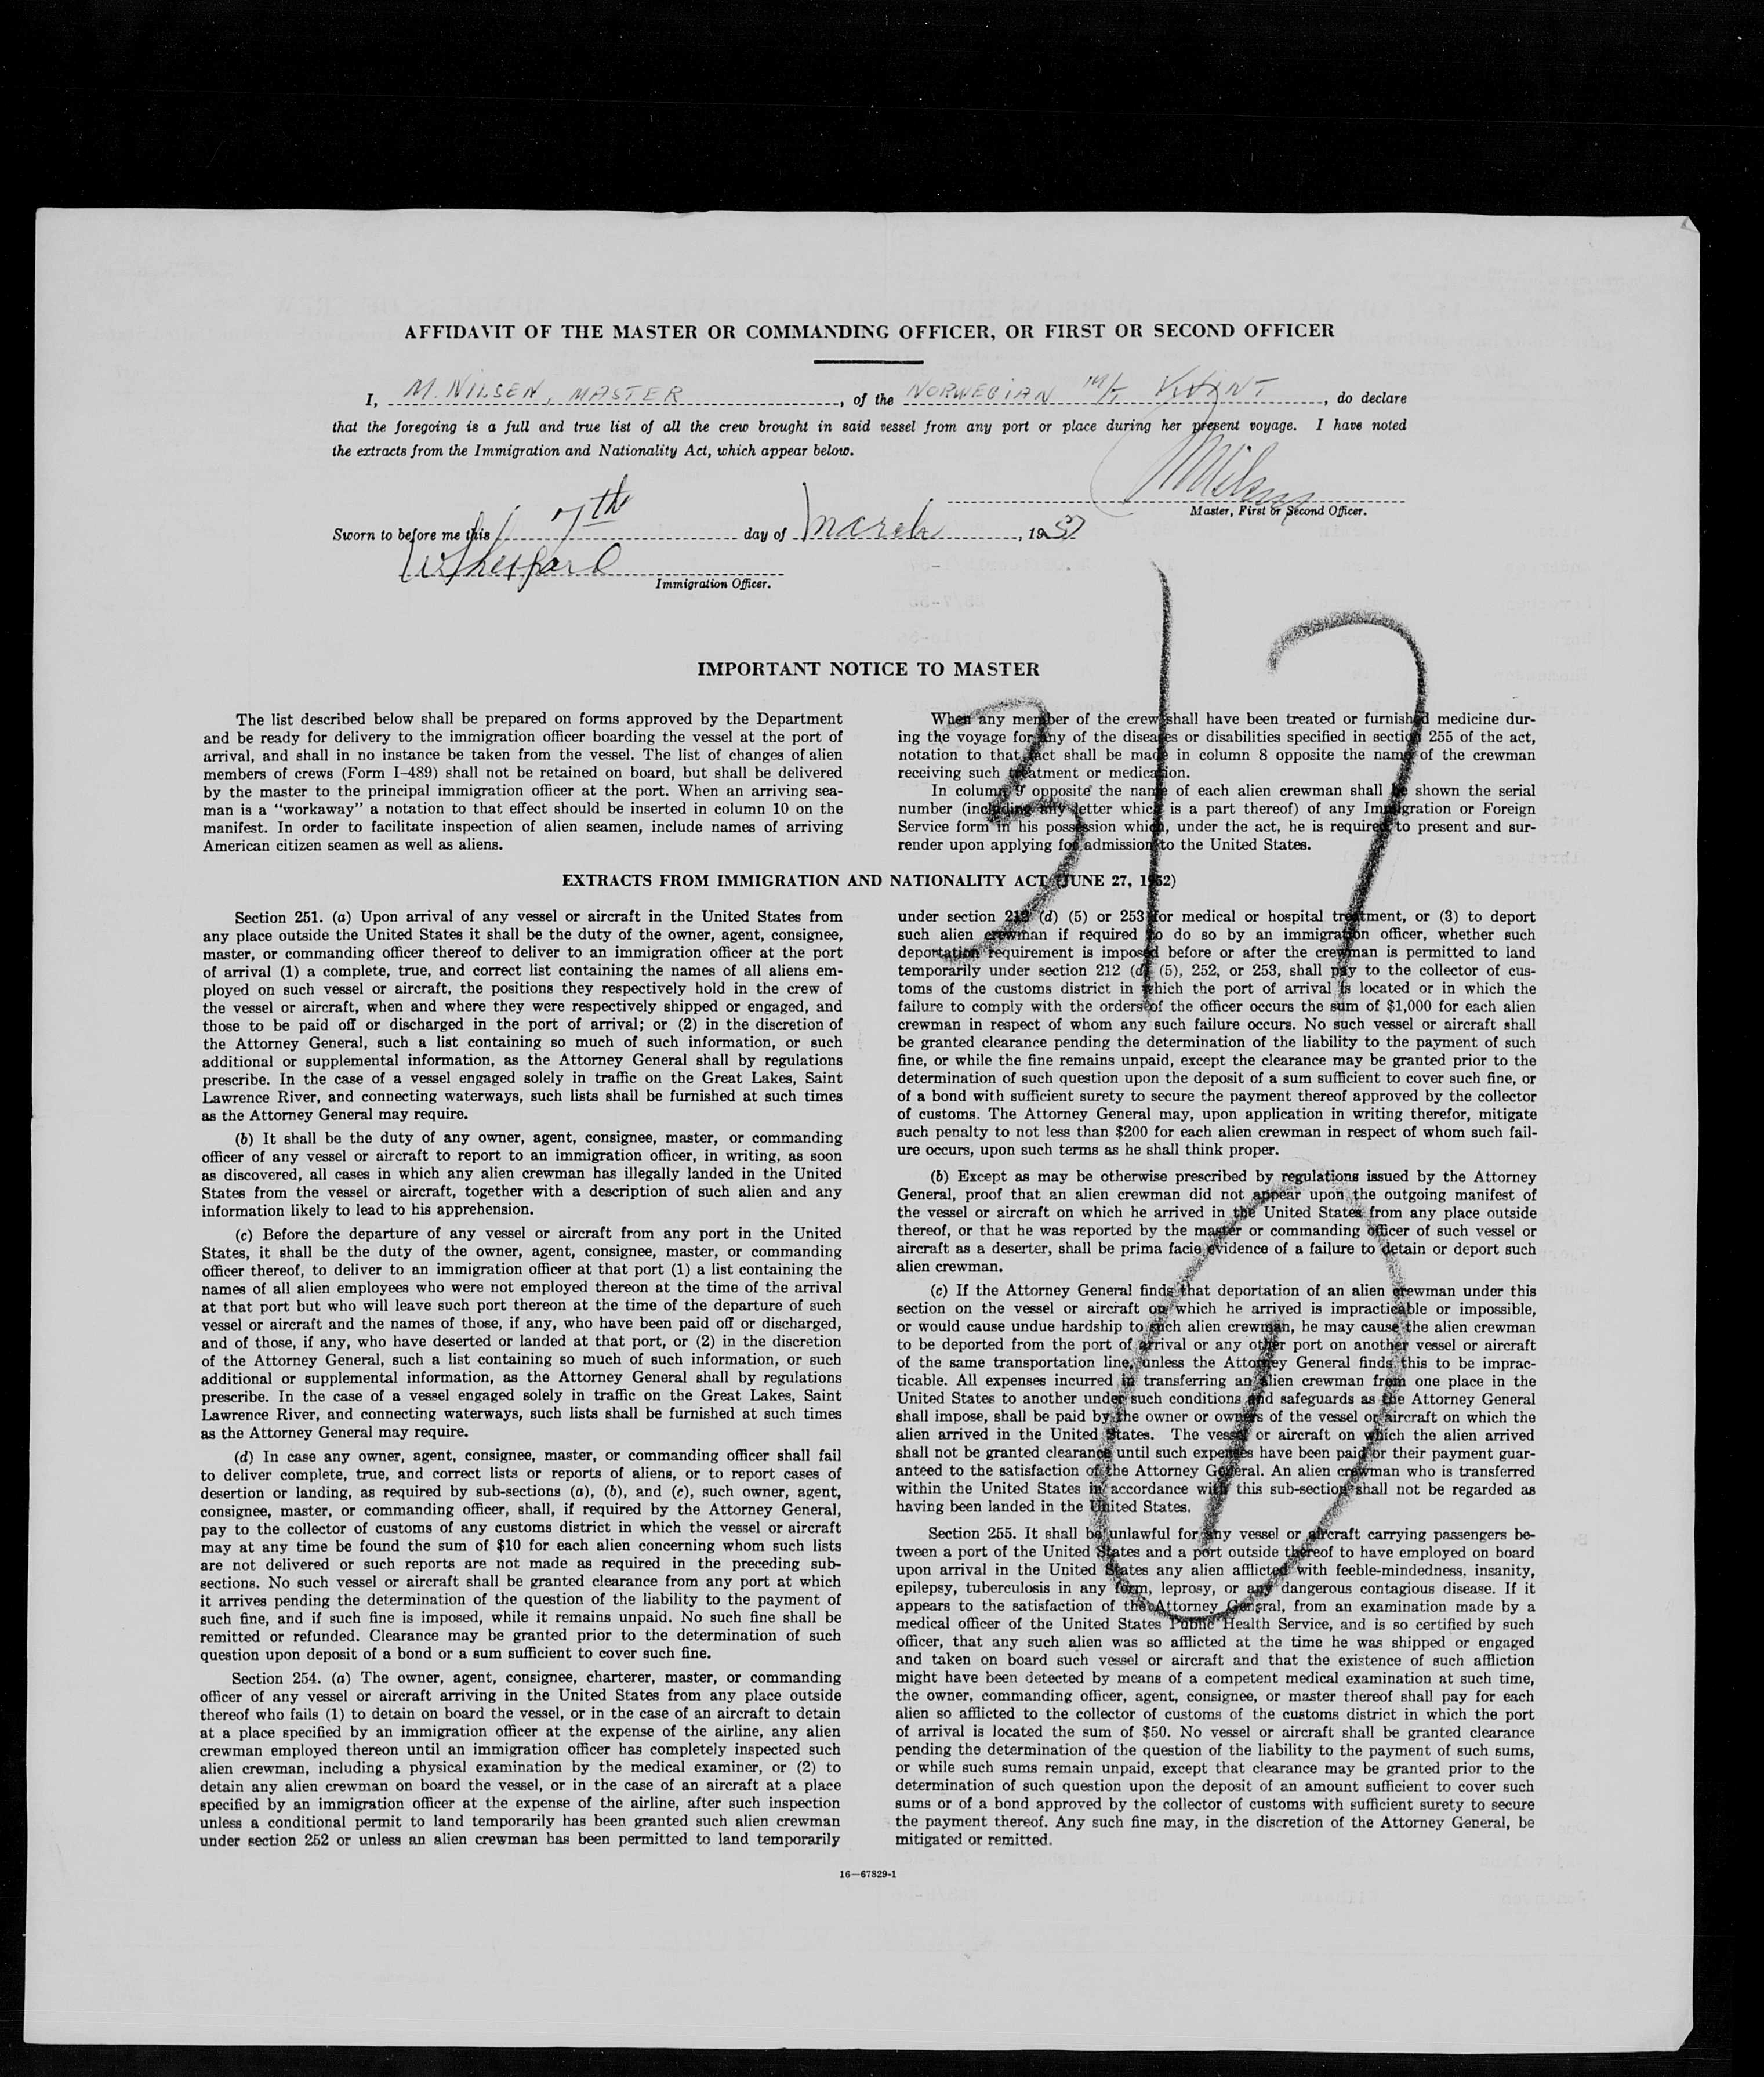 AFFIDAVIT OF THE MASTER OR COMMANDING OFFICER, OR FIRST OR SECOND OFFICER
I, M. NILSEN, MASTER, of the NORWEGIAN M/T, do declare
that the foregoing is a full and true list of all the crew brought in said vessel from any port or place during her present voyage. I have noted
the extracts from the Immigration and Nationality Act, which appear below.
MNilsen
Master, First or Second Officer.
Sworn to before me this 7th day of March, 1957
Immigration Officer.
3/7
IMPORTANT NOTICE TO MASTER
The list described below shall be prepared on forms approved by the Department
and be ready for delivery to the immigration officer boarding the vessel at the port of
arrival, and shall in no instance be taken from the vessel. The list of changes of alien
members of crews (Form I–489) shall not be retained on board, but shall be delivered
by the master to the principal immigration officer at the port. When an arriving sea-
man is a “workaway” a notation to that effect should be inserted in column 10 on the
manifest. In order to facilitate inspection of alien seamen, include names of arriving
American citizen seamen as well as aliens.
When any member of the crew shall have been treated or furnished medicine dur-
ing the voyage for any of the diseases or disabilities specified in section 255 of the act,
notation to that fact shall be made in column 8 opposite the name of the crewman
receiving such treatment or medication.
In column 9 opposite the name of each alien crewman shall be shown the serial
number (including any letter which is a part thereof) of any Immigration or Foreign
Service form in his possession which, under the act, he is required to present and sur-
render upon applying for admission to the United States.
EXTRACTS FROM IMMIGRATION AND NATIONALITY ACT (JUNE 27, 1952)
Section 251. (a) Upon arrival of any vessel or aircraft in the United States from
any place outside the United States it shall be the duty of the owner, agent, consignee,
master, or commanding officer thereof to deliver to an immigration officer at the port
of arrival (1) a complete, true, and correct list containing the names of all aliens em-
ployed on such vessel or aircraft, the positions they respectively hold in the crew of
the vessel or aircraft, when and where they were respectively shipped or engaged, and
those to be paid off or discharged in the port of arrival; or (2) in the discretion of
the Attorney General, such a list containing so much of such information, or such
additional or supplemental information, as the Attorney General shall by regulations
prescribe. In the case of a vessel engaged solely in traffic on the Great Lakes, Saint
Lawrence River, and connecting waterways, such lists shall be furnished at such times
as the Attorney General may require.
(b) It shall be the duty of any owner, agent, consignee, master, or commanding
officer of any vessel or aircraft to report to an immigration officer, in writing, as soon
as discovered, all cases in which any alien crewman has illegally landed in the United
States from the vessel or aircraft, together with a description of such alien and any
information likely to lead to his apprehension.
(c) Before the departure of any vessel or aircraft from any port in the United
States, it shall be the duty of the owner, agent, consignee, master, or commanding
officer thereof, to deliver to an immigration officer at that port (1) a list containing the
names of all alien employees who were not employed thereon at the time of the arrival
at that port but who will leave such port thereon at the time of the departure of such
vessel or aircraft and the names of those, if any, who have been paid off or discharged,
and of those, if any, who have deserted or landed at that port, or (2) in the discretion
of the Attorney General, such a list containing so much of such information, or such
additional or supplemental information, as the Attorney General shall by regulations
prescribe. In the case of a vessel engaged solely in traffic on the Great Lakes, Saint
Lawrence River, and connecting waterways, such lists shall be furnished at such times
as the Attorney General may require.
(d) In case any owner, agent, consignee, master, or commanding officer shall fail
to deliver complete, true, and correct lists or reports of aliens, or to report cases of
desertion or landing, as required by sub-sections (a), (b), and (c), such owner, agent,
consignee, master, or commanding officer, shall, if required by the Attorney General,
pay to the collector of customs of any customs district in which the vessel or aircraft
may at any time be found the sum of $10 for each alien concerning whom such lists
are not delivered or such reports are not made as required in the preceding sub-
sections. No such vessel or aircraft shall be granted clearance from any port at which
it arrives pending the determination of the question of the liability to the payment of
such fine, and if such fine is imposed, while it remains unpaid. No such fine shall be
remitted or refunded. Clearance may be granted prior to the determination of such
question upon deposit of a bond or a sum sufficient to cover such fine.
Section 254. (a) The owner, agent, consignee, charterer, master, or commanding
officer of any vessel or aircraft arriving in the United States from any place outside
thereof who fails (1) to detain on board the vessel, or in the case of an aircraft to detain
at a place specified by an immigration officer at the expense of the airline, any alien
crewman employed thereon until an immigration officer has completely inspected such
alien crewman, including a physical examination by the medical examiner, or (2) to
detain any alien crewman on board the vessel, or in the case of an aircraft at a place
specified by an immigration officer at the expense of the airline, after such inspection
unless a conditional permit to land temporarily has been granted such alien crewman
under section 252 or unless an alien crewman has been permitted to land temporarily
under section 212 (d) (5) or 253 for medical or hospital treatment, or (3) to deport
such alien crewman if required to do so by an immigration officer, whether such
deportation requirement is imposed before or after the crewman is permitted to land
temporarily under section 212 (d) (5), 252, or 253, shall pay to the collector of cus-
toms of the customs district in which the port of arrival is located or in which the
failure to comply with the orders of the officer occurs the sum of $1,000 for each alien
crewman in respect of whom any such failure occurs. No such vessel or aircraft shall
be granted clearance pending the determination of the liability to the payment of such
fine, or while the fine remains unpaid, except the clearance may be granted prior to the
determination of such question upon the deposit of a sum sufficient to cover such fine, or
of a bond with sufficient surety to secure the payment thereof approved by the collector
of customs. The Attorney General may, upon application in writing therefor, mitigate
such penalty to not less than $200 for each alien crewman in respect of whom such fail-
ure occurs, upon such terms as he shall think proper.
(b) Except as may be otherwise prescribed by regulations issued by the Attorney
General, proof that an alien crewman did not appear upon the outgoing manifest of
the vessel or aircraft on which he arrived in the United States from any place outside
thereof, or that he was reported by the master or commanding officer of such vessel or
aircraft as a deserter, shall be prima facie evidence of a failure to detain or deport such
alien crewman.
(c) If the Attorney General finds that deportation of an alien crewman under this
section on the vessel or aircraft on which he arrived is impracticable or impossible,
or would cause undue hardship to such alien crewman, he may cause the alien crewman
to be deported from the port of arrival or any other port on another vessel or aircraft
of the same transportation line, unless the Attorney General finds this to be imprac-
ticable. All expenses incurred in transferring an alien crewman from one place in the
United States to another under such conditions and safeguards as the Attorney General
shall impose, shall be paid by the owner or owners of the vessel or aircraft on which the
alien arrived in the United States. The vessel or aircraft on which the alien arrived
shall not be granted clearance until such expenses have been paid or their payment guar-
anteed to the satisfaction of the Attorney General. An alien crewman who is transferred
within the United States in accordance with this sub-section shall not be regarded as
having been landed in the United States.
1
Section 255. It shall be unlawful for any vessel or aircraft carrying passengers be-
tween a port of the United States and a port outside thereof to have employed on board
upon arrival in the United States any alien afflicted with feeble-mindedness, insanity,
epilepsy, tuberculosis in any form, leprosy, or any dangerous contagious disease. If it
appears to the satisfaction of the Attorney General, from an examination made by a
medical officer of the United States Public Health Service, and is so certified by such
officer, that any such alien was so afflicted at the time he was shipped or engaged
and taken on board such vessel or aircraft and that the existence of such affliction
might have been detected by means of a competent medical examination at such time,
the owner, commanding officer, agent, consignee, or master thereof shall pay for each
alien so afflicted to the collector of customs of the customs district in which the port
of arrival is located the sum of $50. No vessel or aircraft shall be granted clearance
pending the determination of the question of the liability to the payment of such sums,
or while such sums remain unpaid, except that clearance may be granted prior to the
determination of such question upon the deposit of an amount sufficient to cover such
sums or of a bond approved by the collector of customs with sufficient surety to secure
the payment thereof. Any such fine may, in the discretion of the Attorney General, be
mitigated or remitted.
16—67829-1